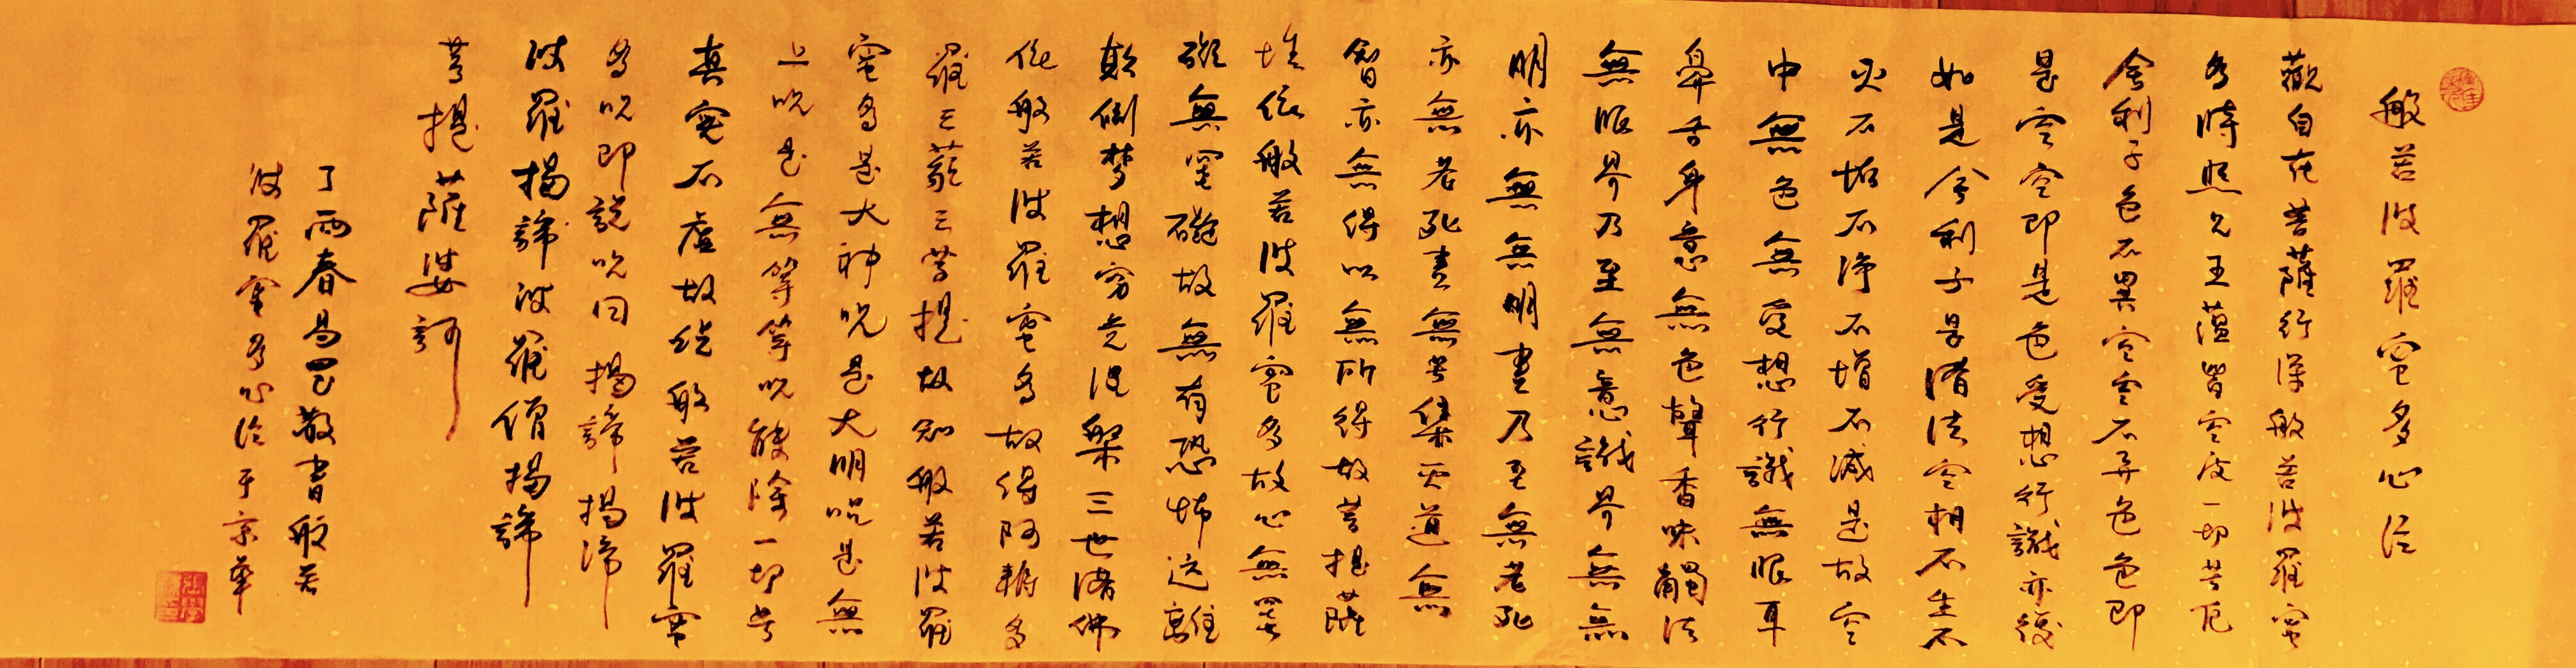 般若波羅蜜多心經
觀自在菩薩行深般若波羅蜜
多時照見五蘊皆空度一切苦厄
舍利子色不異空空不異色色即
是空空即是色受想行識亦復
如是舍利子是諸法空相不生不
滅不垢不淨不增不減是故空
中無色無受想行識無眼耳
鼻舌身意無色聲香味觸法
無眼界乃至無意識界無無
明亦無無明盡乃至無老死
亦無老死盡無苦集滅道無
智亦無得以無所得故菩提薩
埵依般若波羅蜜多故心無罣
礙無罣礙故無有恐怖遠離
顛倒夢想究竟涅槃三世諸佛
依般若波羅蜜多故得阿耨多
羅三藐三菩提故知般若波羅
蜜多是大神咒是大明咒是無
上咒是無等等咒能除一切苦
真實不虛故說般若波羅蜜
多咒即說咒曰揭諦揭諦
波羅揭諦波羅僧揭諦
菩提薩婆訶
丁酉春易昆敬書般若
波羅蜜多心經于京華